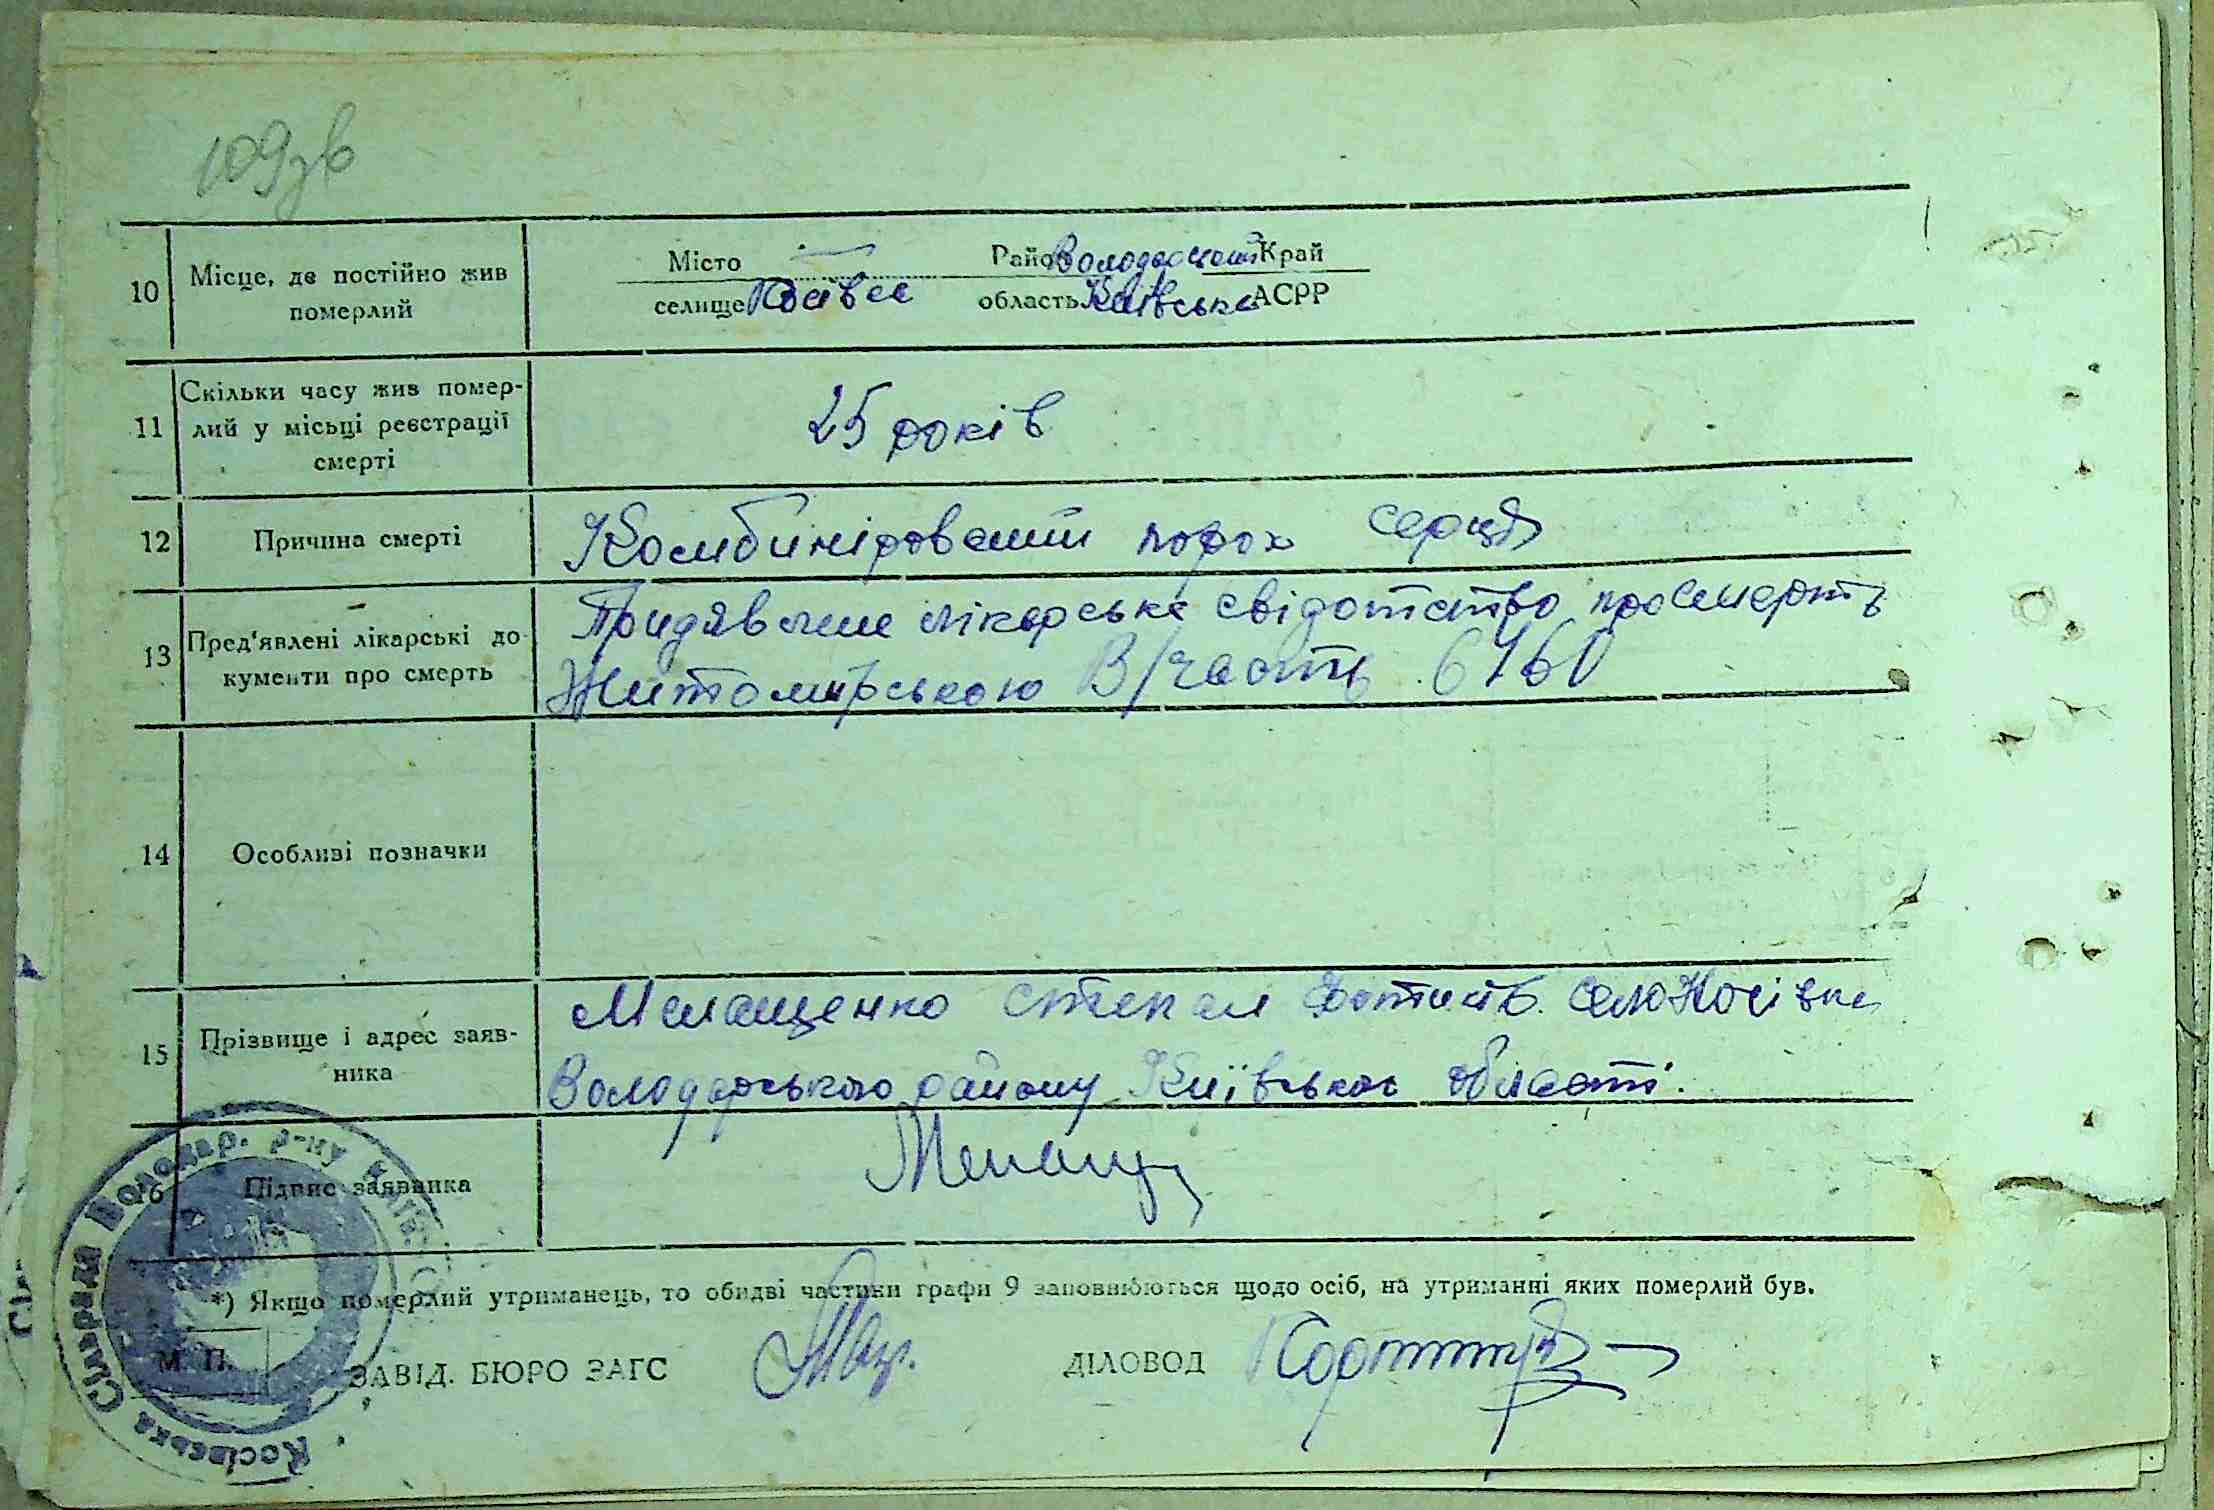 109зв
Місто Район Володарський Край
10 Місце, де постійно жив
померлий
селище Косівка область Київська АСРР
11 Скільки часу жив помер-
лий у місьці реєстрації
смерті
25 років
12 Причина смерті
Комбиніровании порок серця
13 Пред'явлені лікарські до
кументи про смерть
лікарське свідотство про смерть
Житомирською В/часть 6160
14 Особливі позначки
15 Прізвище і адрес заяв-
ника
Мелащенко Степан село Косівка
Володарського району Київської області.
16 Підпис заявника
*) Якщо померлий утриманець, то обидві частини графи 9 заповнюються щодо осіб, на утриманні яких померлий був.
М. П.
ЗАВІД. БЮРО ЗАГС ДІЛОВОД
Косівська Сільрада Володар. р-ну